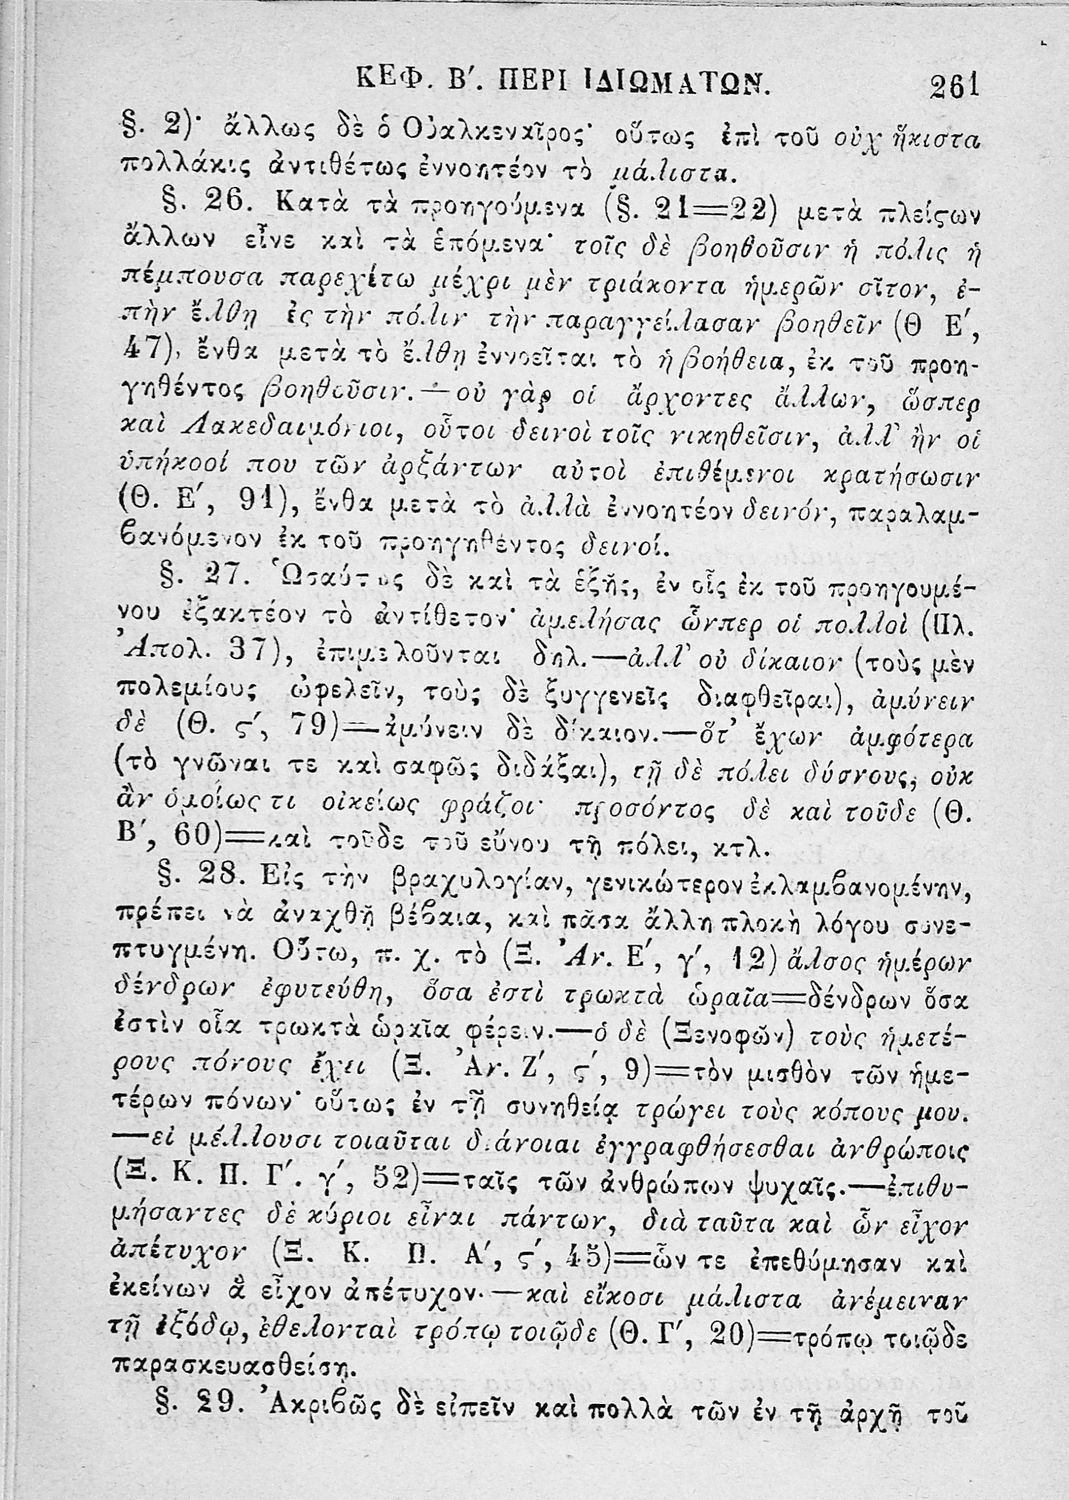 ΚΕΦ. Β′. ΠΕΡΙ ΙΔΙΩΜΑΤΩΝ. 261
§. 2)· ἄλλως δὲ ὁ Οὐαλκεναῖρος· οὕτως ἐπὶ τοῦ οὐχ ἥκιστα
πολλάκις ἀντιθέτως ἐννοητέον τὸ μάλιστα.
§. 26. Κατὰ τὰ προηγούμενα (§. 21=22) μετὰ πλείςων
ἄλλων εἶνε καὶ τὰ ἑπόμενα· τοῖς δὲ βοηθοῦσιν ἡ πόλις ἡ
πέμπουσα παρεχέτω μέχρι μὲν τριάκοντα ἡμερῶν σῖτον, ἐ-
πὴν ἔλθῃ ἐς τὴν πόλιν τὴν παραγγείλασαν βοηθεῖν (Θ Ε′,
47), ἔνθα μετὰ τὸ ἔλθῃ ἐννοεῖται τὸ ἡ βοήθεια, ἐκ τοῦ προη-
γηθέντος βοηθοῦσιν.—οὐ γὰρ οἱ ἄρχοντες ἄλλων, ὥσπερ
καὶ Λακεδαιμόνιοι, οὗτοι δεινοὶ τοῖς νικηθεῖσιν, ἀλλ' ἢν οἱ
ὑπήκοοί που τῶν ἀρξάντων αὐτοὶ ἐπιθέμενοι κρατήσωσιν
(Θ. Ε′, 91), ἔνθα μετὰ τὸ ἀλλὰ ἐννοητέον δεινόν, παραλαμ-
βανόμενον ἐκ τοῦ προηγηθέντος δεινοί.
§. 27. Ὡσαύτως δὲ καὶ τὰ ἑξῆς, ἐν οἷς ἐκ τοῦ προηγουμέ-
νου ἐξακτέον τὸ ἀντίθετον· ἀμελήσας ὧνπερ οἱ πολλοὶ (Πλ.
Ἀπολ. 37), ἐπιμελοῦνται δηλ.—ἀλλ' οὐ δίκαιον (τοὺς μὲν
πολεμίους ὠφελεῖν, τοὺς δὲ ξυγγενεῖς διαφθεῖραι), ἀμύνειν
δὲ (Θ. ς′, 79)=ἀμύνειν δὲ δίκαιον.—ὅτ' ἔχων ἀμφότερα
(τὸ γνῶναι τε καὶ σαφῶς διδάξαι), τῇ δὲ πόλει δύσνους, οὐκ
ἂν ὁμοίως τι οἰκείως φράζοι· προσόντος δὲ καὶ τοῦδε (Θ.
Β′, 60)=καὶ τοῦδε τοῦ εὔνου τῇ πόλει, κτλ.
§. 28. Εἰς τὴν βραχυλογίαν, γενικώτερον ἐκλαμβανομένην,
πρέπει νὰ ἀναχθῇ βέβαια, καὶ πᾶσα ἄλλη πλοκὴ λόγου συνε-
πτυγμένη. Οὕτω, π. χ. τὸ (Ξ. Ἀν. Ε′, γ′, 12) ἄλσος ἡμέρων
δένδρων ἐφυτεύθη, ὅσα ἐστὶ τρωκτὰ ὡραῖα=δένδρων ὅσα
ἐστὶν οἷα τρωκτὰ ὡραῖα φέρειν.—ὁ δὲ (Ξενοφῶν) τοὺς ἡμετέ-
ρους πόνους ἔχει (Ξ. Ἀν. Ζ′, ς′, 9)=τὸν μισθὸν τῶν ἡμε-
τέρων πόνων· οὕτως ἐν τῇ συνηθείᾳ τρώγει τοὺς κόπους μου.
—εἰ μέλλουσι τοιαῦται διάνοιαι ἐγγραφθήσεσθαι ἀνθρώποις
(Ξ. Κ. Π. Γ′. γ′, 52)=ταῖς τῶν ἀνθρώπων ψυχαῖς.—ἐπιθυ-
μήσαντες δὲ κύριοι εἶναι πάντων, διὰ ταῦτα καὶ ὧν εἶχον
ἀπέτυχον (Ξ. Κ. Π. Α′, ς′, 45)=ὧν τε ἐπεθύμησαν καὶ
ἐκείνων ἃ εἶχον ἀπέτυχον.—καὶ εἴκοσι μάλιστα ἀνέμειναν
τῇ ἐξόδῳ, ἐθελονταὶ τρόπῳ τοιῷδε (Θ. Γ′, 20)=τρόπῳ τοιῷδε
παρασκευασθείσῃ.
§. 29. Ἀκριβῶς δὲ εἰπεῖν καὶ πολλὰ τῶν ἐν τῇ ἀρχῇ τοῦ